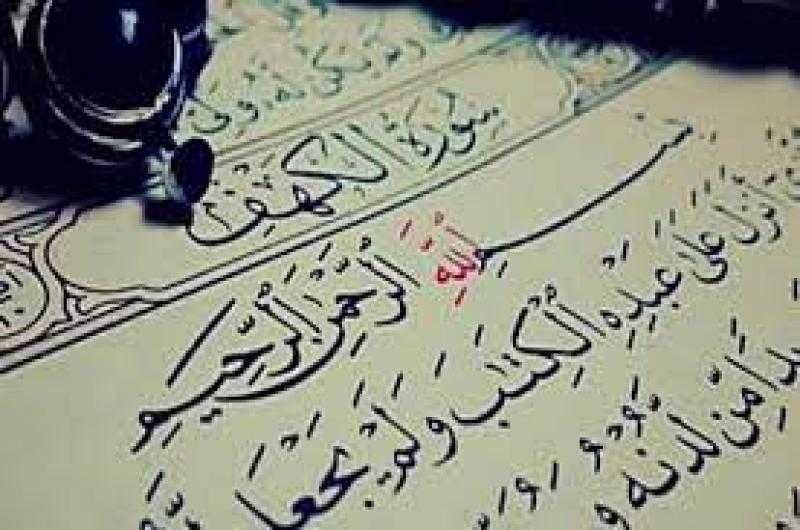 يَكُن لَّهُۥ وَلِىٌّ
سُورَةُ الكَهْفِ
بِسْمِ اللَّهِ الرَّحْمَٰنِ الرَّحِيمِ
أَنزَلَ عَلَىٰ عَبْدِهِ الْكِتَٰبَ وَلَمْ يَجْعَل
مِّن لَّدُنْهُ وَ